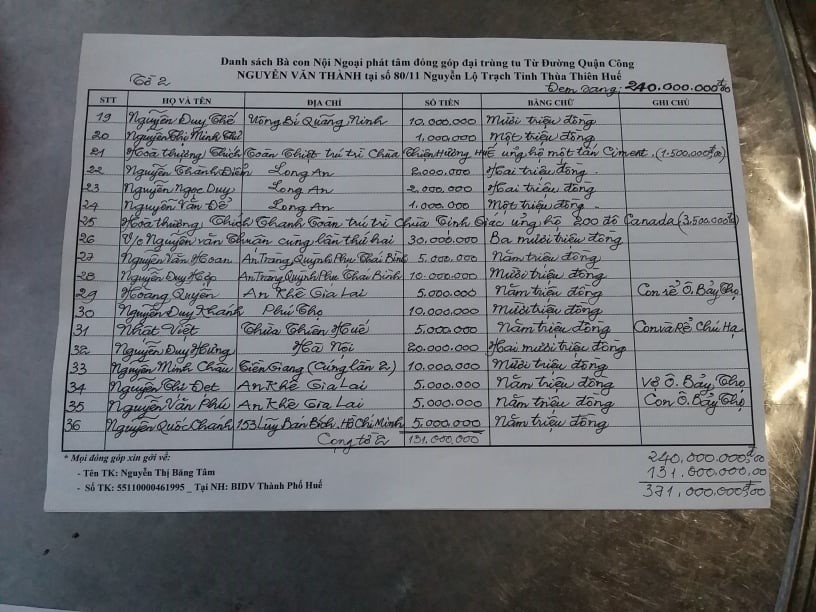 Danh sách Bà con Nội Ngoại phát tâm đóng góp đại trùng tu Từ Đường Quận Công
NGUYỄN VĂN THÀNH tại số 80/11 Nguyễn Lộ Trạch Tỉnh Thừa Thiên Huế
Tờ 2 Đem sang: 240.000.000đ00
STT HỌ VÀ TÊN ĐỊA CHỈ SỐ TIỀN BẰNG CHỮ GHI CHÚ
19 Nguyễn Duy Thế Uông Bí Quãng Ninh 10.000.000 Mười triệu đồng
20 Nguyễn Thị Minh Thử 1.000.000 Một triệu đồng
21 Hoà thượng Thích Toàn Thiết trú trì Chùa Thiên Hương Huế ủng hộ một tấn Ciment. (1.500.000đ00)
22 Nguyễn Thanh Điềm Long An 2.000.000 Hai triệu đồng.
23 Nguyễn Ngọc Duy Long An 2.000.000 Hai triệu đồng
24 Nguyễn Văn Để Long An 1.000.000 Một triệu đồng
25 Hoà thượng Thích Thanh Toàn trú trì Chùa Tịnh Giác ủng hộ 200 đô Canada (3.500.000đ)
26 V/c Nguyễn văn Thuần cúng lần thứ hai 30.000.000 Ba mươi triệu đồng
27 Nguyễn Văn Hoan An Tràng Quỳnh Phụ Thái Bình 5.000.000 Năm triệu đồng
28 Nguyễn Duy Hợp An Tràng Quỳnh Phụ Thái Bình 10.000.000 Mười triệu đồng
29 Hoàng Quyền An Khê Gia Lai 5.000.000 Năm triệu đồng Con rể Ô. Bảy Thọ
30 Nguyễn Duy Khánh Phú Thọ 10.000.000 Mười triệu đồng
31 Nhất Việt Thừa Thiên Huế 5.000.000 Năm triệu đồng Con và Rể Chú Hạ
32 Nguyễn Duy Hưng Hà Nội 20.000.000 Hai mươi triệu đồng
33 Nguyễn Minh Châu Tiền Giang (Cúng lần 2) 10.000.000 Mười triệu đồng
34 Nguyễn Thị Đẹt An Khê Gia Lai 5.000.000 Năm triệu đồng Vợ Ô. Bảy Thọ
35 Nguyễn Văn Phú An Khê Gia Lai 5.000.000 Năm triệu đồng Con Ô. Bảy Thọ
36 Nguyễn Quốc Chanh 153 Lũy Bán Bích. Hồ Chí Minh 5.000.000 Năm triệu đồng
Cọng tờ 2 131.000.000
* Mọi đóng góp xin gởi về:
- Tên TK: Nguyễn Thị Băng Tâm
- Số TK: 55110000461995 _ Tại NH: BIDV Thành Phố Huế
240.000.000đ00
131.000.000,00
371.000.000đ00